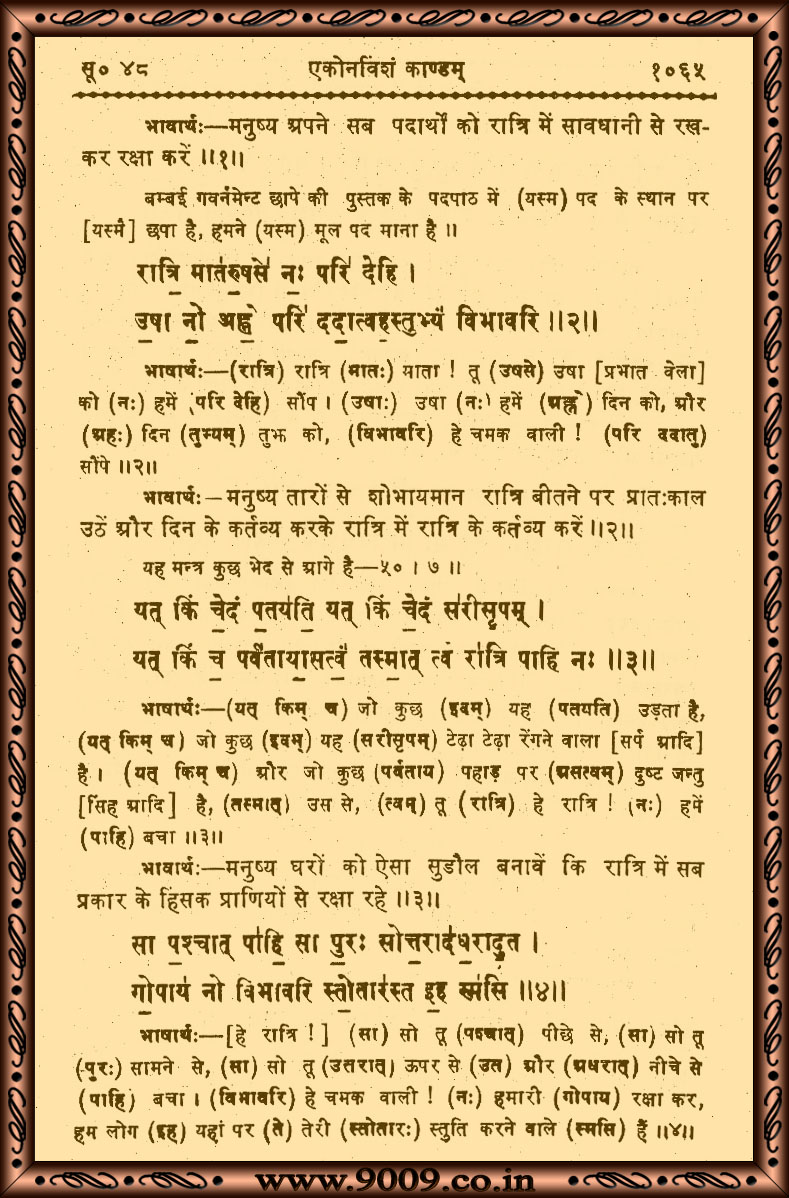 सू० ४८ एकोनविंशं काण्डम् १०६५
भावार्थः—मनुष्य अपने सब पदार्थों को रात्रि में सावधानी से रख-
कर रक्षा करें ॥१॥
बम्बई गवर्नमेन्ट छापे की पुस्तक के पदपाठ में (यस्म) पद के स्थान पर
[यस्मै] छपा है, हमने (यस्म) मूल पद माना है ॥
रात्रि॒ मात॑रु॒षसे॑ नः॒ परि॑ देहि ।
उ॒षा नो॒ अह्ने॒ परि॑ ददा॒त्वह॒स्तुभ्यं॑ विभावरि ॥२॥
भाषार्थः—(रात्रि) रात्रि (मातः) माता ! तू (उषसे) उषा [प्रभात वेला]
को (नः) हमें (परि देहि) सौंप । (उषाः) उषा (नः) हमें (अह्ने) दिन को, और
(अहः) दिन (तुभ्यम्) तुझ को, (विभावरि) हे चमक वाली ! (परि ददातु)
सौंपे ॥२॥
भावार्थः—मनुष्य तारों से शोभायमान रात्रि बीतने पर प्रातःकाल
उठें और दिन के कर्तव्य करके रात्रि में रात्रि के कर्तव्य करें ॥२॥
यह मन्त्र कुछ भेद से आगे है—५० । ७ ॥
यत् किं चे॒दं प॒तय॑ति॒ यत् किं चे॒दं स॑रीसृ॒पम् ।
यत् किं च॒ पर्व॑ताया॒सत्वं॒ तस्मा॒त् त्वं रा॑त्रि पाहि नः ॥३॥
भाषार्थः—(यत् किम् च) जो कुछ (इदम्) यह (पतयति) उड़ता है,
(यत् किम् च) जो कुछ (इदम्) यह (सरीसृपम्) टेढ़ा टेढ़ा रेंगने वाला [सर्प आदि]
है । (यत् किम् च) और जो कुछ (पर्वताय) पहाड़ पर (असत्वम्) दुष्ट जन्तु
[सिंह आदि] है, (तस्मात्) उस से, (त्वम्) तू (रात्रि) हे रात्रि ! (नः) हमें
(पाहि) बचा ॥३॥
भावार्थः—मनुष्य घरों को ऐसा सुडौल बनावें कि रात्रि में सब
प्रकार के हिंसक प्राणियों से रक्षा रहे ॥३॥
सा प॒श्चात् पा॑हि॒ सा पु॒रः सोत्त॒राद॑ध॒रादु॒त ।
गो॒पाय॑ नो विभावरि स्तो॒तार॑स्त इ॒ह स्म॑सि ॥४॥
भाषार्थः—[हे रात्रि !] (सा) सो तू (पश्चात्) पीछे से, (सा) सो तू
(पुरः) सामने से, (सा) सो तू (उतरात्) ऊपर से (उत) और (अधरात्) नीचे से
(पाहि) बचा । (विभावरि) हे चमक वाली ! (नः) हमारी (गोपाय) रक्षा कर,
हम लोग (इह) यहां पर (ते) तेरी (स्तोतारः) स्तुति करने वाले (स्मसि) हैं ॥४॥
www.9009.co.in